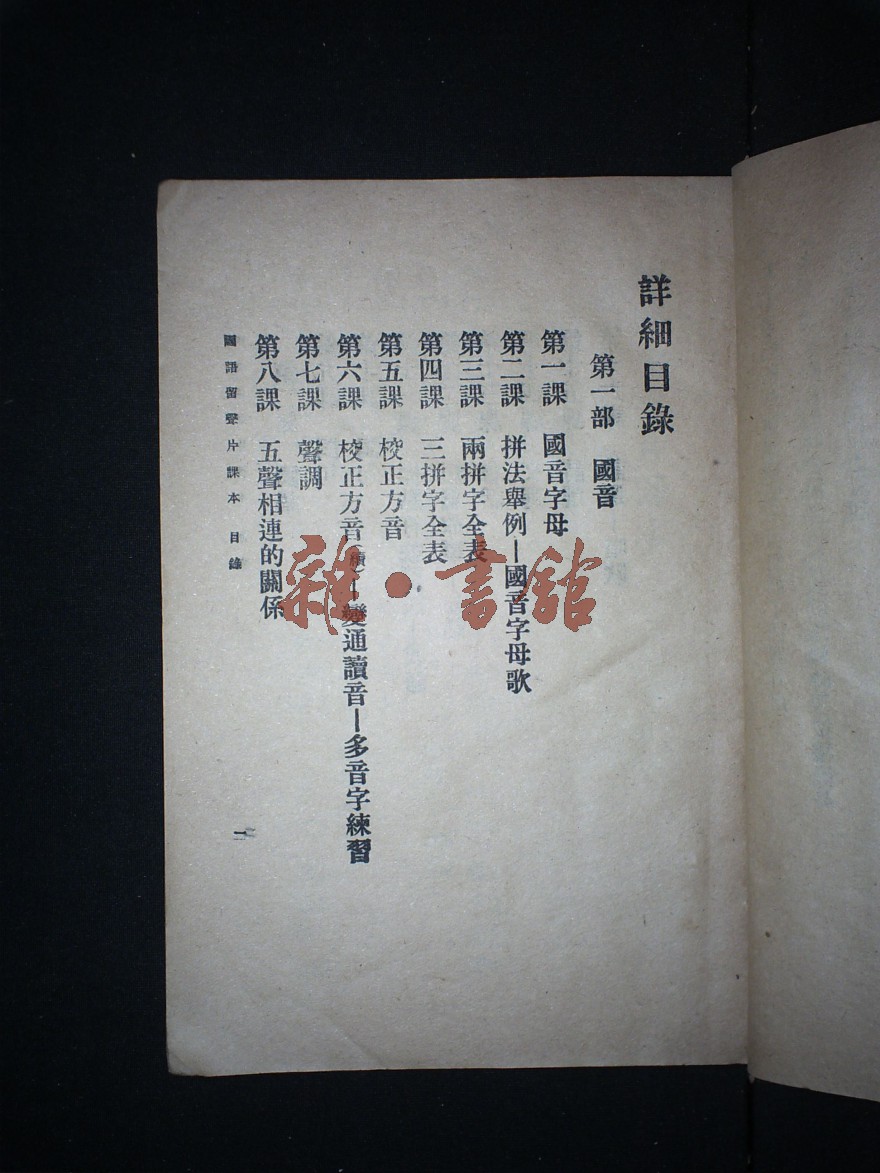 詳細目錄
第一部 國音
第一課 國音字母
第二課 拼法舉例—國音字母歌
第三課 兩拼字全表
第四課 三拼字全表
第五課 校正方音
第六課 校正方音(續)—變通讀音—多音字練習
第七課 聲調
第八課 五聲相連的關係
國語留聲片課本 目錄
一
雜·書館